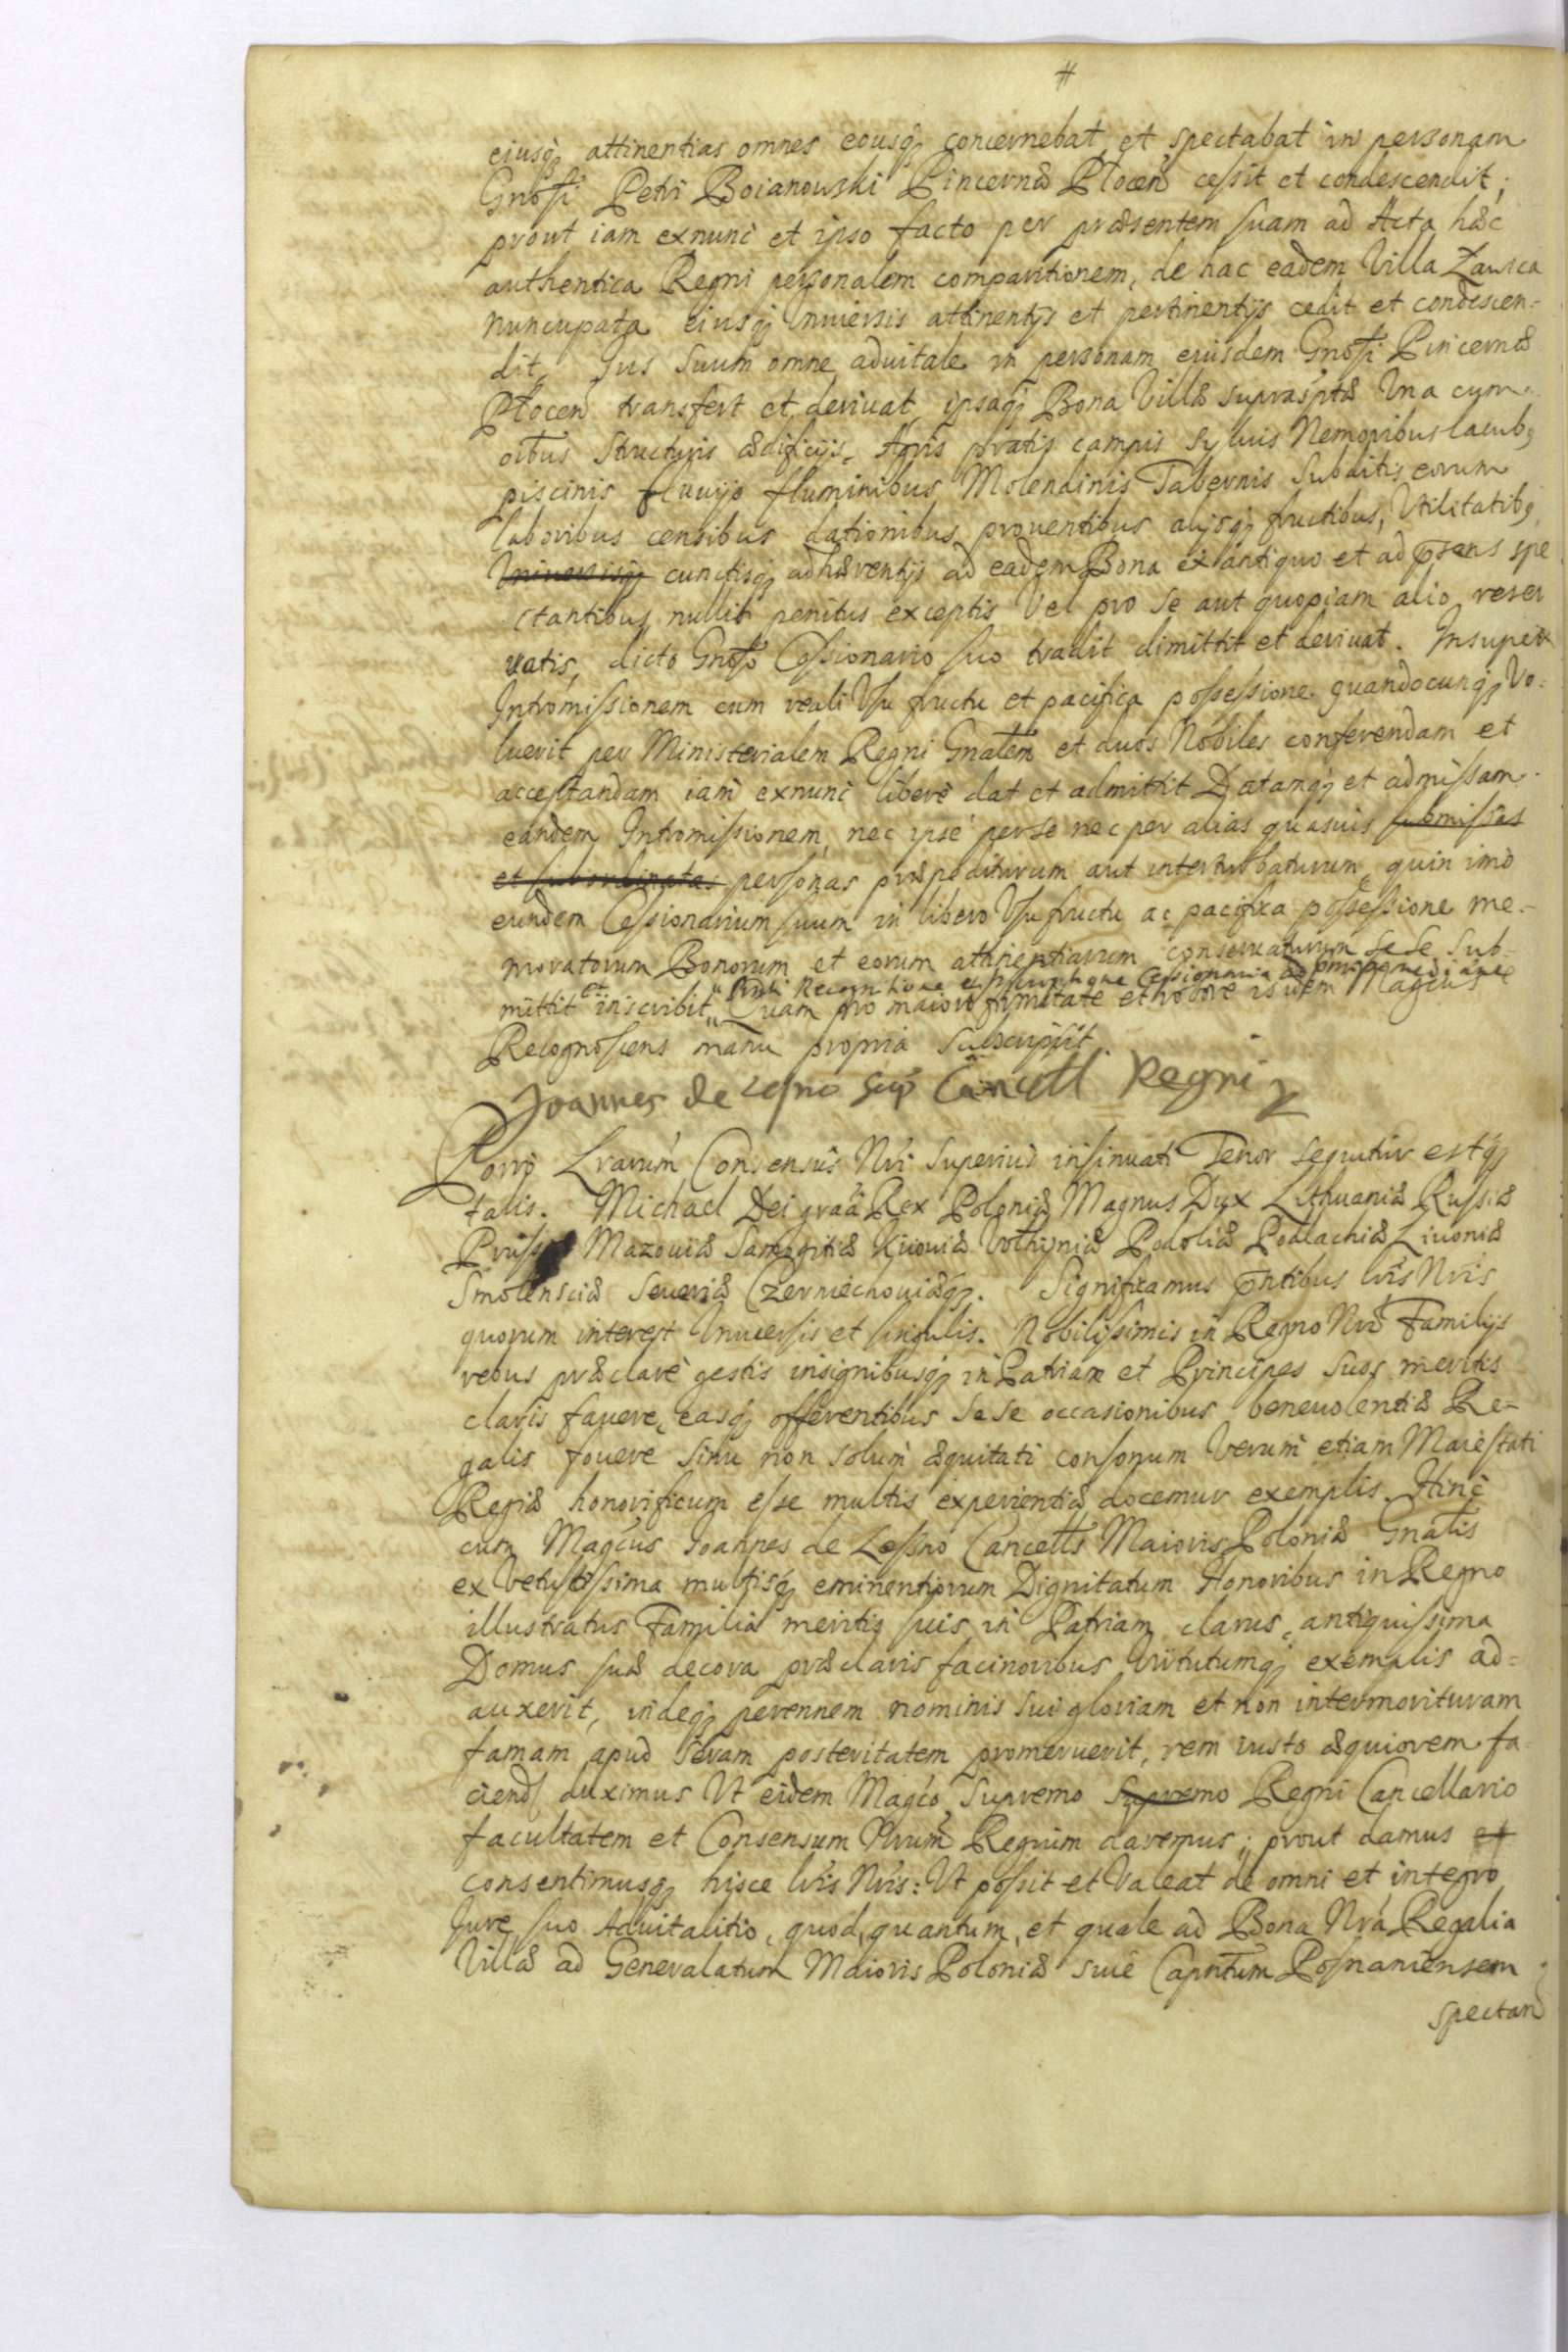 #
eiusq; attinentias omnes eousq; concernebat et spectabat in personam
Gnosi Petri Boianowski Pincernæ Płocen cessit et condescendit;
prout iam exnunc et ipso facto per præsentem suam ad Acta hæc
authentica Regni personalem comparitionem, de hac eadem Villa Zawsca
nuncupata eiusq; Vniuersis attinentijs et pertinentijs cedit et condescen-
dit, Jus suum omne aduitale in personam eiusdem Gnosi Pincernæ
Płocen transfert et deriuat, ipsaq; Bona Villæ suprasptæ Vna cum
oibus structuris ædificijs, Agris pratis campis Syluis Nemoribus lacub9
piscinis fluuijs fluminibus Molendinis Tabernis subditis eorum
laboribus censibus dationibus prouentibus alijsq; fructibus, Vtilitatib9
Vniuersisq; cunctisq; adhærentijs ad eadem Bona ex antiquo et ad præsens spe
ctantibus, nullis penitus exceptis Vel pro se aut quopiam alio reser
uatis, dicto Gnoso Cessionario suo tradit dimittit et deriuat. Insuper
Intromissionem cum reali Vsu fructu et pacifica possessione quandocunq; Vo-
luerit per Ministerialem Regni Gnalem et duos Nobiles conferendam et
acceptandam iam exnunc liberè dat et admittit Datamq; et admissam
eandem Intromissionem, nec ipse per se nec per alias quasuis submissas
et subordinatas personas præpediturum aut interturbaturum, quin imò
eundem Cessionarium suum in libero Vsufructu ac pacifica possessione me-
moratorum Bonorum et eorum attinentiarum conseruaturum sese sub-
Recognitione Cessionaria
mittit et inscribit, Quam pro maiore firmitate et robore isdem Magcus
Recognoscens manu propria subscripsit.
Joannes de Lesno Sup Cancell Regni
Porrò Lrarum Consensus Nri superius insinuati Tenor sequitur estq;
talis. Michael Dei graa Rex Poloniæ Magnus Dux Lithuaniæ Russiæ
Prussiæ Mazouiæ Samogitiæ Kiiouiæ Vołhyniæ Podoliæ Podlachiæ Liuoniæ
Smolensciæ Seueriæ Czerniechouiæq;. Significamus pntibus lris Nris
quorum interest Vniuersis et singulis. Nobilissimis in Regno Nro Familijs
rebus præclarè gestis insignibusq; in Patriam et Principes suos meritis
claris fauere, easq; offerentibus sese occasionibus beneuolentiæ Re-
galis fouere sinu non solum æquitati consonum Verum etiam Maiestati
Regiæ honorificum esse multis experientia docemur exemplis. Hinc
cum Magcus Joannes de Lessno Cancells Maioris Poloniæ Gnalis
ex Vetustissima multisq; eminentiorum Dignitatum Honoribus in Regno
illustratus Familia meritis suis in Patriam clarus, antiquissima
Domus suæ decora præclaris facinoribus Virtutumq; exemplis ad-
auxerit, indeq; perennem nominis sui gloriam et non intermorituram
famam apud seram posteritatem promeruerit, rem iusto æquiorem fa-
ciend duximus Vt eidem Magco Supremo Supremo Regni Cancellario
facultatem et Consensum Nrum Regium daremus; prout damus et
consentimusq; hisce lris Nris: Vt possit et Valeat de omni et integro
Jure suo Aduitalitio, quod, quantum, et quale ad Bona Nra Regalia
Villas ad Generalatum Maioris Poloniæ siue Capntum Posnaniensem
spectand